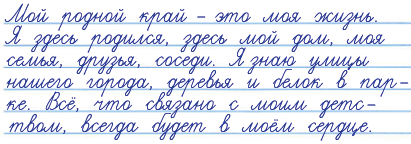 Мой родной край – это моя жизнь.
Я здесь родился, здесь мой дом, моя
семья, друзья, соседи. Я знаю улицы
нашего города, деревья и белок в пар-
ке. Всё, что связано с моим детс-
твом, всегда будет в моём сердце.